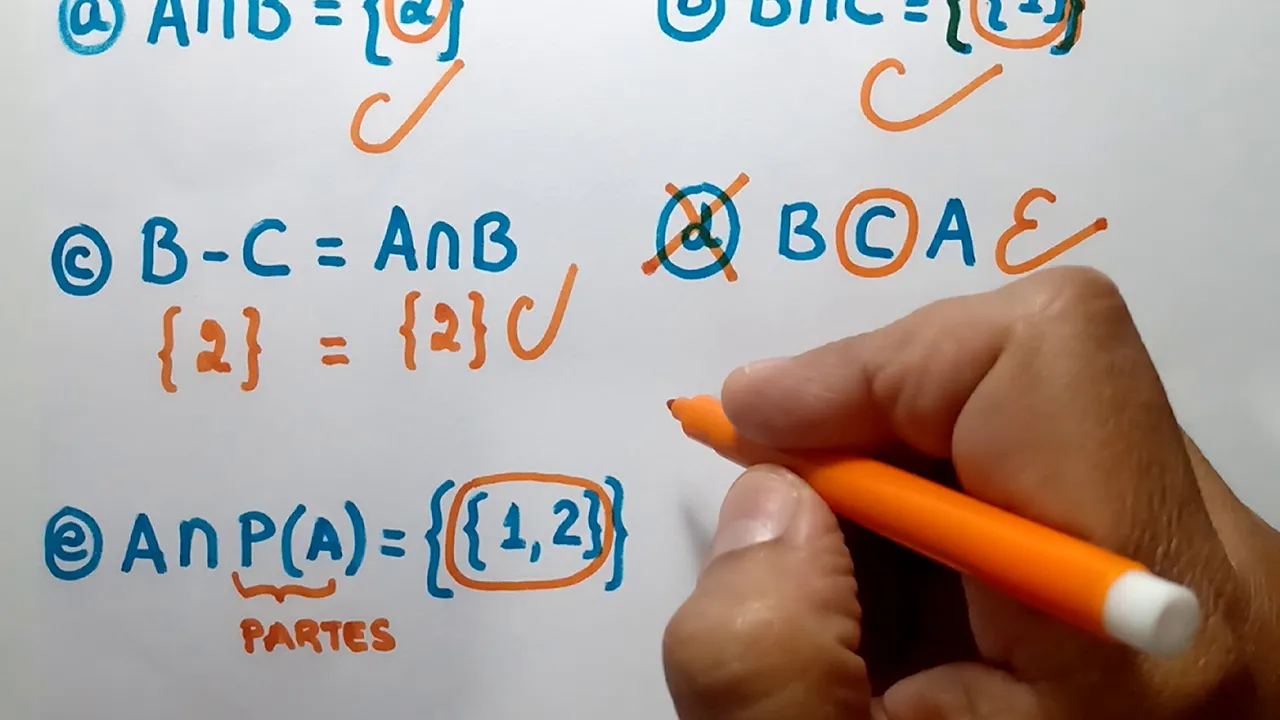 a A∩B = {2}
b B∩C = {{1}}
c B-C = A∩B
{2} = {2}
d B ⊂ A
e A∩P(A) = {{1,2}}
PARTES